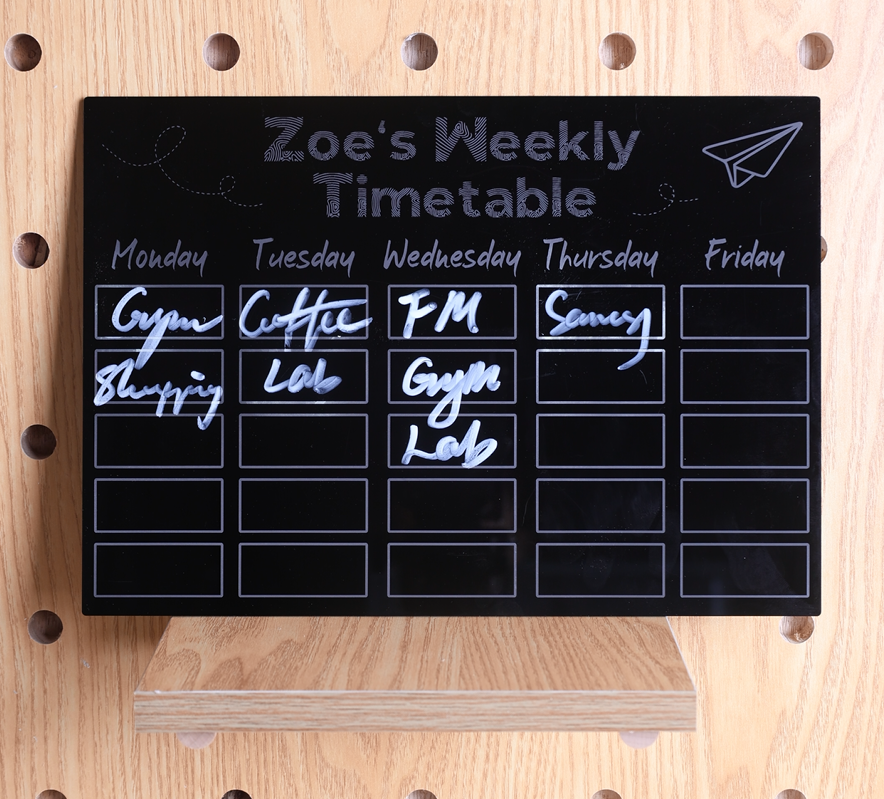 Zoe's Weekly
Timetable
Monday Tuesday Wednesday Thursday Friday
Gym Coffee FM
Shopping Lab Gym
Lab